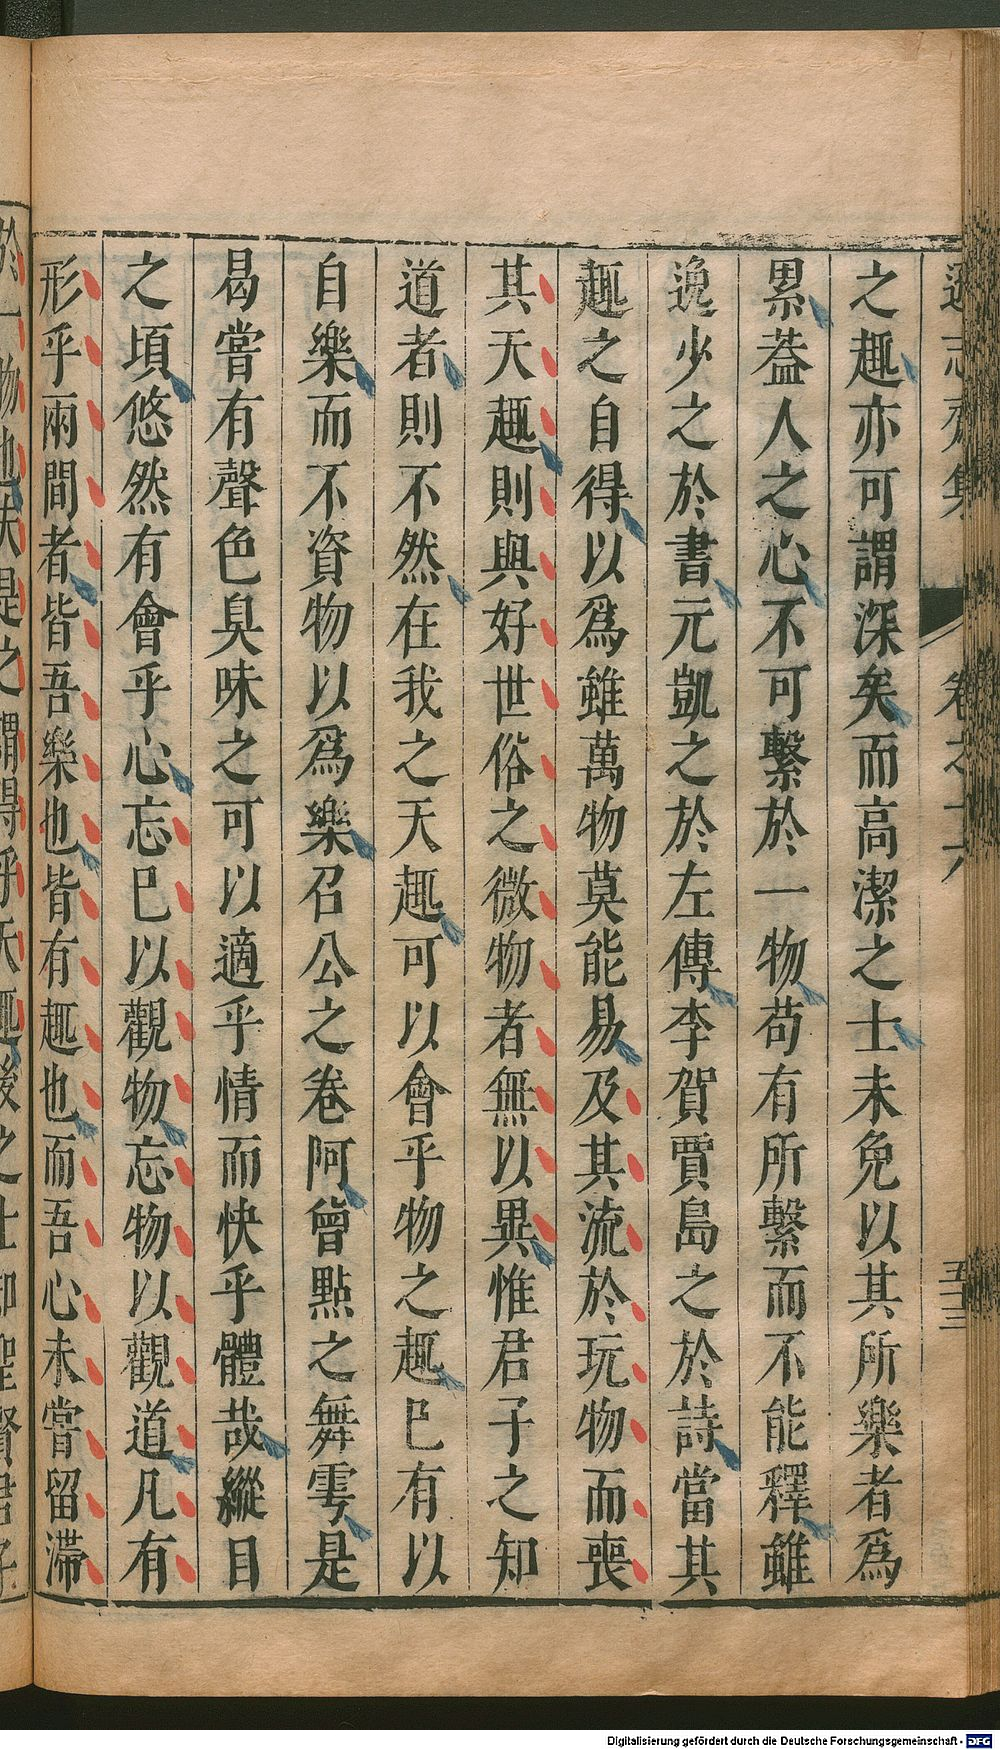 遜志齋集 卷之十六 五十三
之趣亦可謂深矣而高潔之士未免以其所樂者爲
累葢人之心不可繫於一物苟有所繫而不能釋雖
逸少之於書元凱之於左傳李賀賈島之於詩當其
趣之自得以爲雖萬物莫能易及其流於玩物而喪
其天趣則與好世俗之微物者無以異惟君子之知
道者則不然在我之天趣可以會乎物之趣已有以
自樂而不資物以爲樂召公之卷阿曾點之舞雩是
曷嘗有聲色臭味之可以適乎情而快乎體哉縱目
之頃悠然有會乎心忘已以觀物忘物以觀道凡有
形乎兩間者皆吾樂也皆有趣也而吾心未嘗留滯
於一物也夫是之謂得乎天趣後之士卽聖賢君子
Digitalisierung gefördert durch die Deutsche Forschungsgemeinschaft - DFG